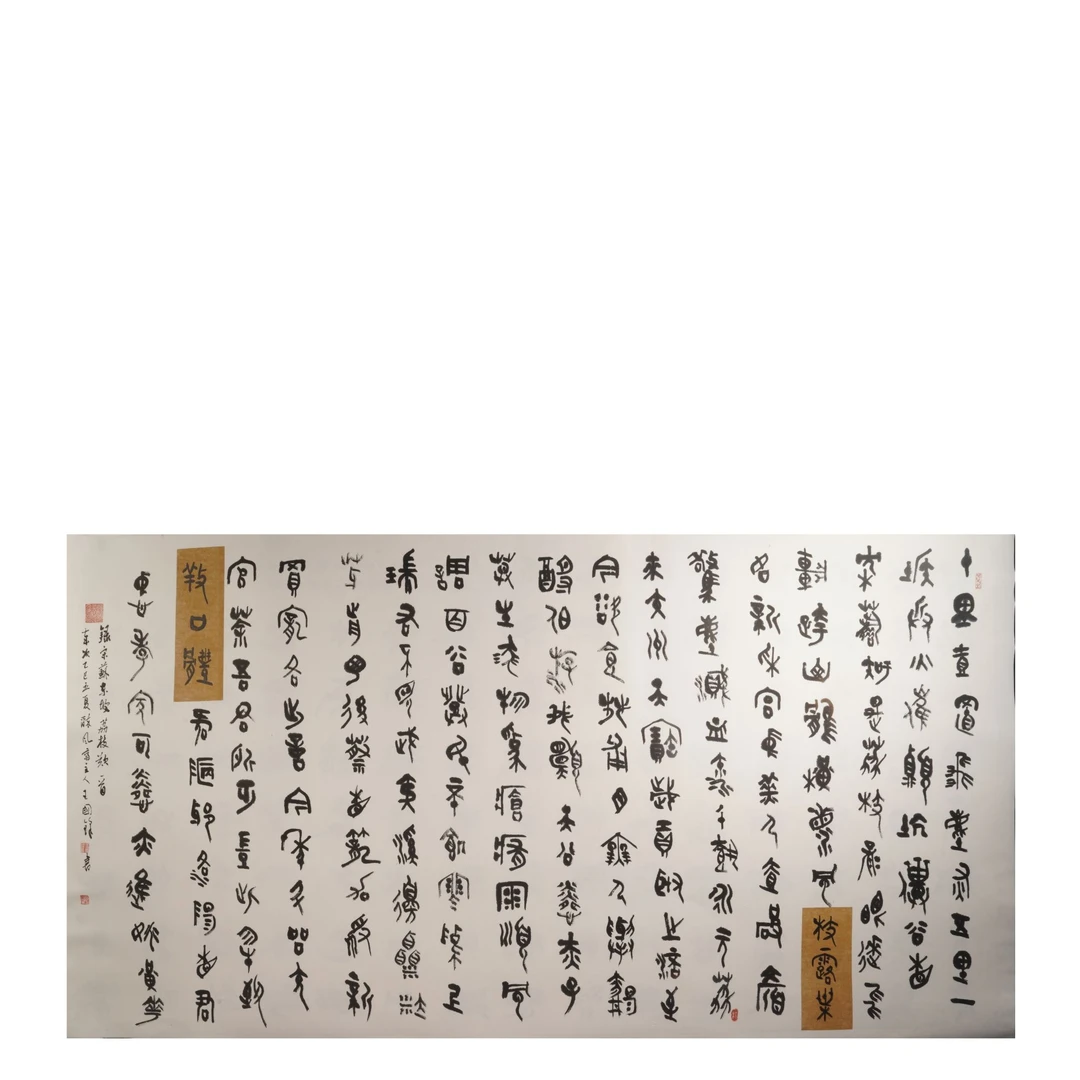 十里壹置飛塵灰五里一
堠兵火催顛坑僕谷相
枕藉知是荔枝龍眼來飛
車跨山鶻橫海風枝露葉
如新采宮中美人壹破顏
驚塵濺血流千載永元荔
來交州天寶歲貢取之涪至
今欲食林甫肉無人舉觴
酹伯游我願天公憐赤子
莫生尤物為瘡痏雨順風
調百谷登民不飢寒為上
瑞君不見武夷溪邊粟粒
芽前丁後蔡相籠加爭新
買寵各出意今年鬥品充
官茶吾君所乏豈此物致
養口體何陋邪洛陽相君
忠孝家可憐亦進姚黃花
錄宋蘇東坡荔枝歎一首
歲次乙巳五夏風齋主人王國書